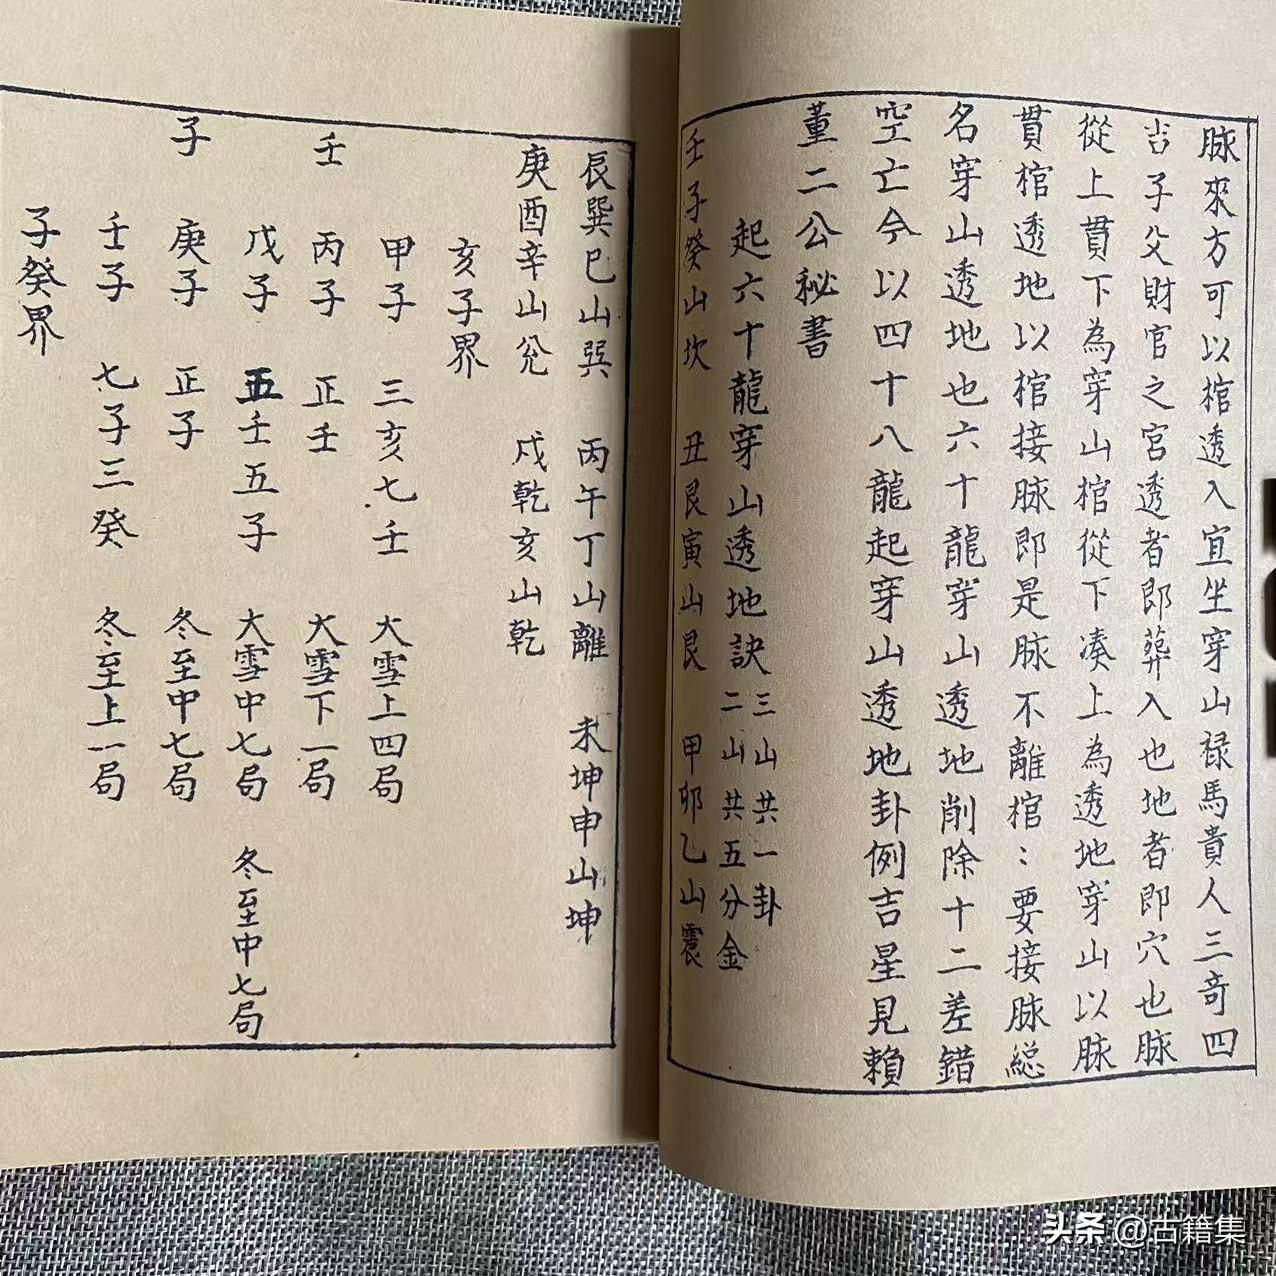 脉來方可以棺透入宜坐穿山禄馬貴人三奇四
吉子父財官之宮透者即葬入也地者即穴也脉
從上貫下為穿山棺從下凑上為透地穿山以脉
貫棺透地以棺接脉即是脉不離棺〻要接脉縂
名穿山透地也六十龍穿山透地削除十二差錯
空亡今以四十八龍起穿山透地卦例吉星見賴
董二公秘書
起六十龍穿山透地訣
三山共一卦
二山共五分金
壬子癸山坎 丑艮寅山艮 甲卯乙山震
辰巽巳山巽 丙午丁山離 未坤申山坤
庚酉辛山兌 戌乾亥山乾
亥子界
甲子 三亥七壬 大雪上四局
壬 丙子 正壬 大雪下一局
戊子 五壬五子 大雪中七局 冬至中七局
子 庚子 正子 冬至中七局
壬子 七子三癸 冬至上一局
子癸界
头条 @古籍集